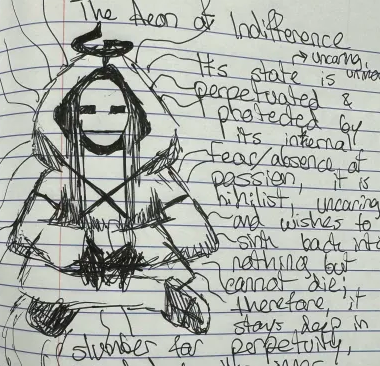 The Aeon of Indifference
→ uncaring,
Its state is
perpetuated &
protected by
its internal
fear/absence of
passion, it is
nihilist, uncaring
and wishes to
sink back into
nothing but
cannot die;
therefore, it
stays deep in
slumber for perpetuity,